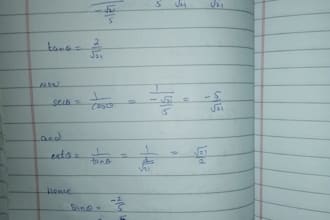 -√21/5 5 √21
tanθ = 2/√21
Now
secθ = 1/cosθ = 1/(-√21/5) = -5/√21
and
cotθ = 1/tanθ = 1/(2/√21) = √21/2
Hence
sinθ = -2/5